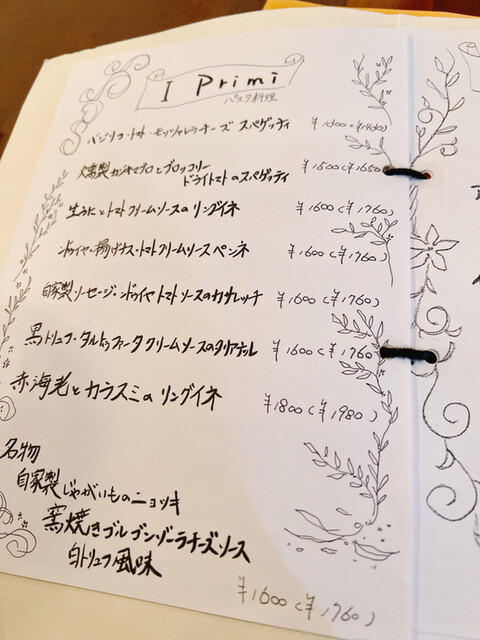 I Primi
パスタ料理
バジリコ・トマト・モッツァレラチーズ スパゲッティ
自家製カジキマグロとブロッコリー ¥1500(¥1650)
ドライトマトのスパゲッティ
生うにとトマトクリームソースのリングイネ ¥1600(¥1760)
ンドゥイヤ・揚げナス・トマトクリームソース ペンネ ¥1600(¥1760)
自家製ソーセージ・ンドゥイヤ トマトソースのカサレッチ ¥1600(¥1760)
黒トリュフ・タルトゥファータ クリームソースのタリアテッレ ¥1600(¥1760)
赤海老とカラスミの リングイネ ¥1800(¥1980)
名物
自家製じゃがいものニョッキ
窯焼きゴルゴンゾーラチーズソース
白トリュフ風味
¥1600(¥1760)